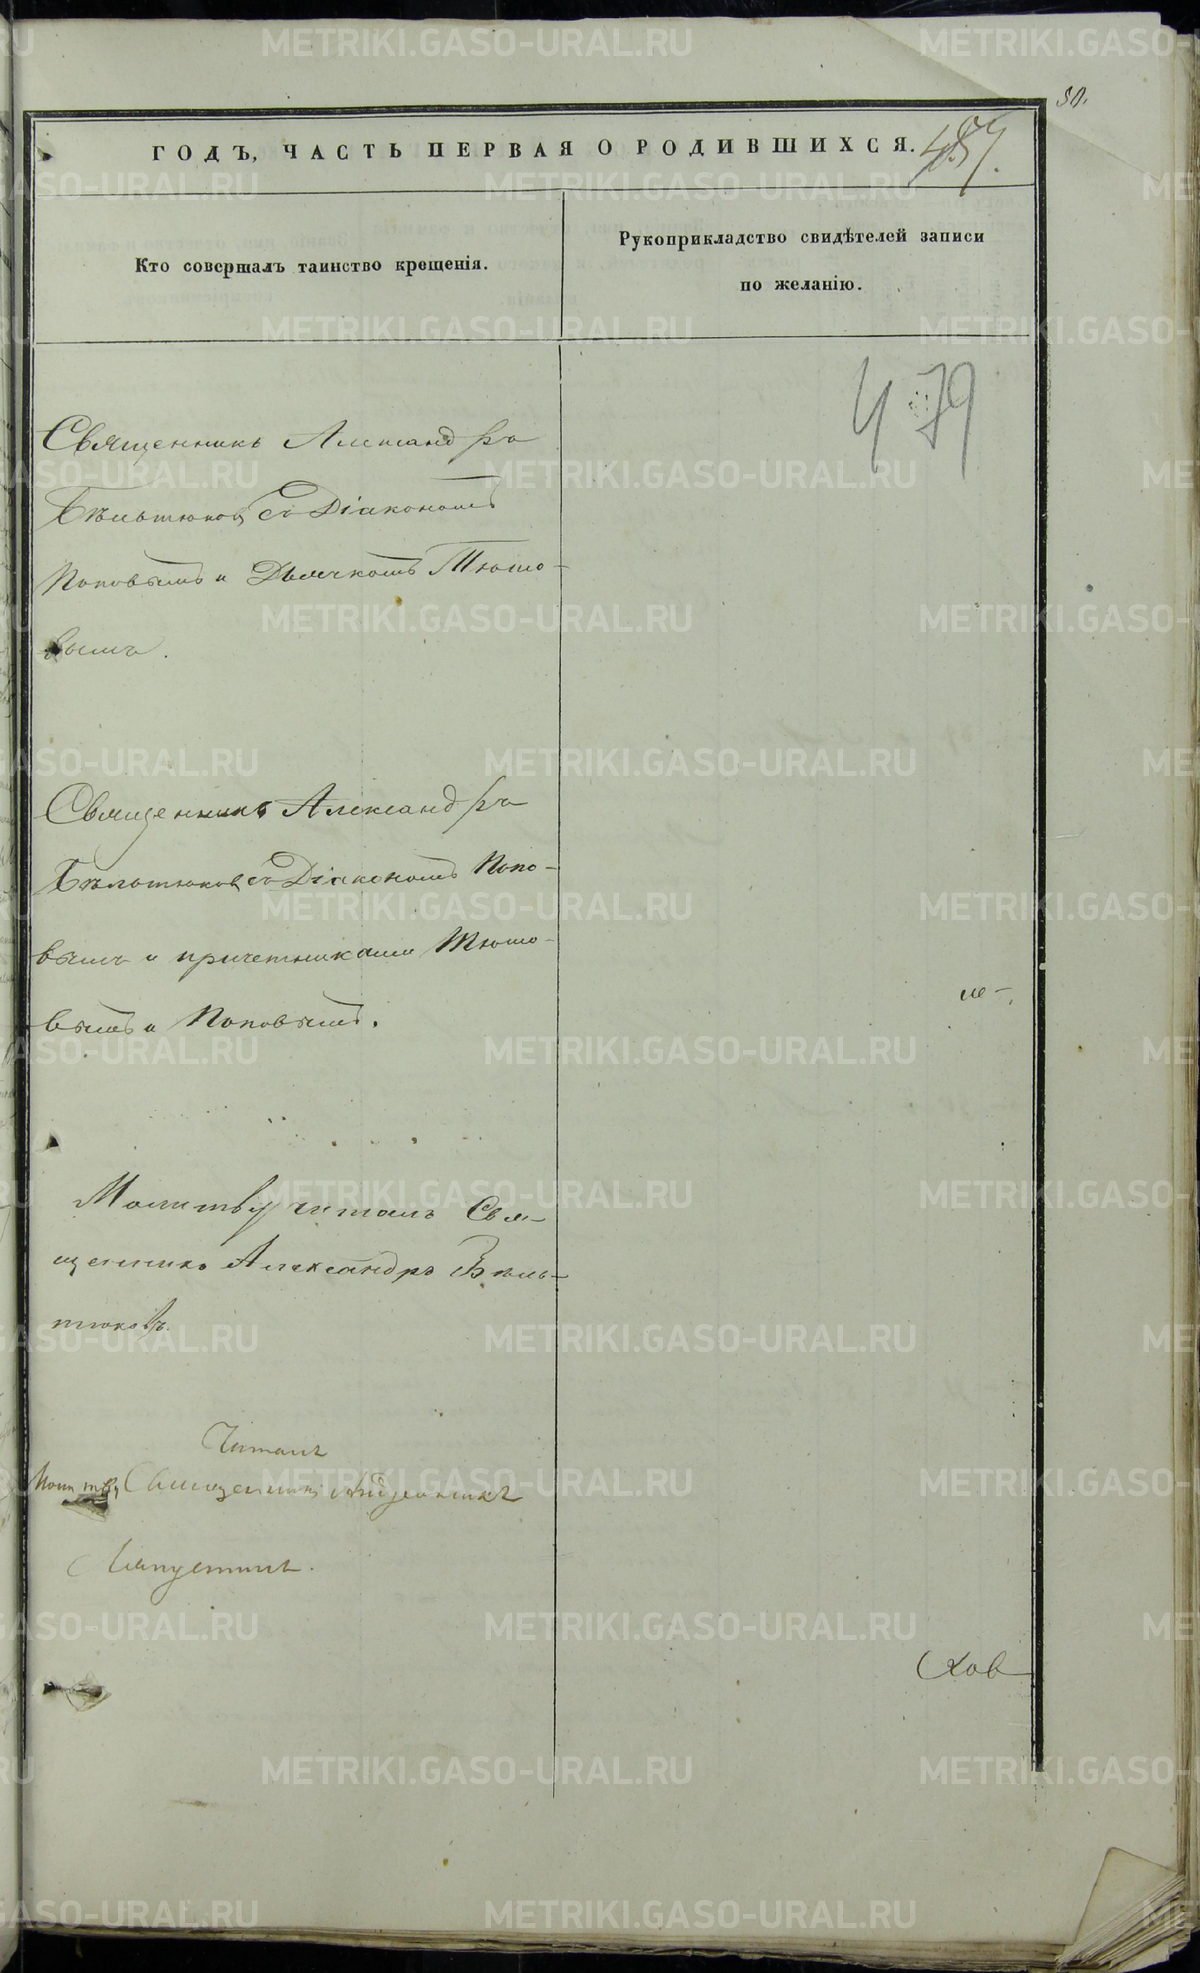 50.
ГОДЪ, ЧАСТЬ ПЕРВАЯ О РОДИВШИХСЯ.
Кто совершалъ таинство крещенія.
Рукоприкладство свидѣтелей записи
по желанію.
479
Священникъ Александръ
Бѣльтюковъ съ Діакономъ
Поповымъ и Дьячкомъ Тюшо-
вымъ.
Священникъ Александръ
Бѣльтюковъ съ Діакономъ Попо-
вымъ и причетниками Тюшо-
вымъ и Поповымъ.
Молитву читалъ Свя-
щенникъ Александръ Бѣль-
тюковъ.
Читалъ
Молитву Священникъ
Ков
METRIKI.GASO-URAL.RU